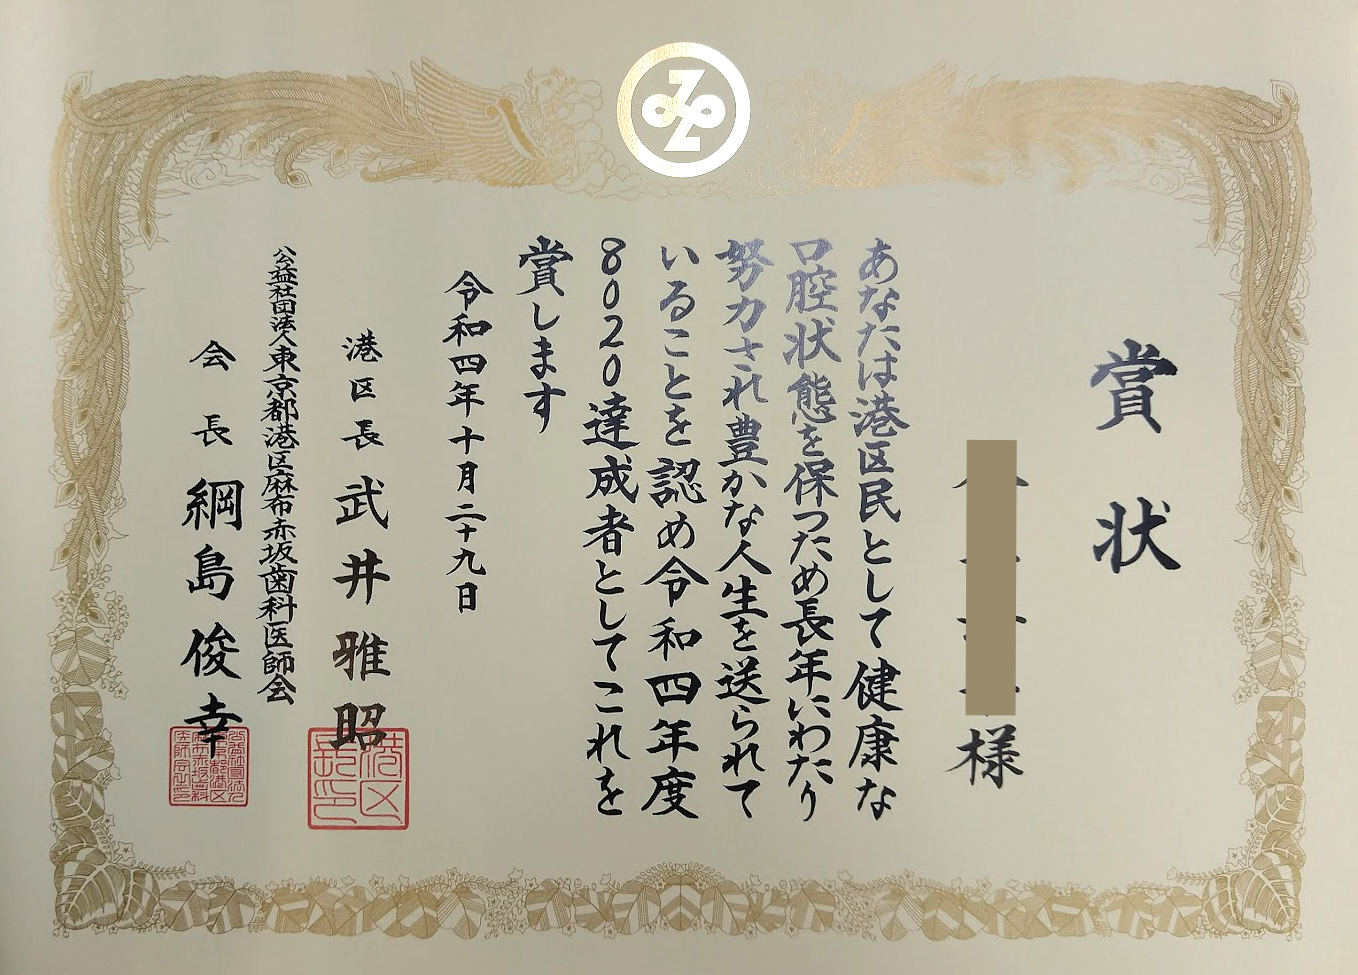 賞状
様
あなたは港区民として健康な
口腔状態を保つため長年にわたり
努力され豊かな人生を送られて
いることを認め令和四年度
8020達成者としてこれを
賞します
令和四年十月二十九日
港区長 武井雅昭
港区長印
公益社団法人東京都港区麻布赤坂歯科医師会
会長 綱島俊幸